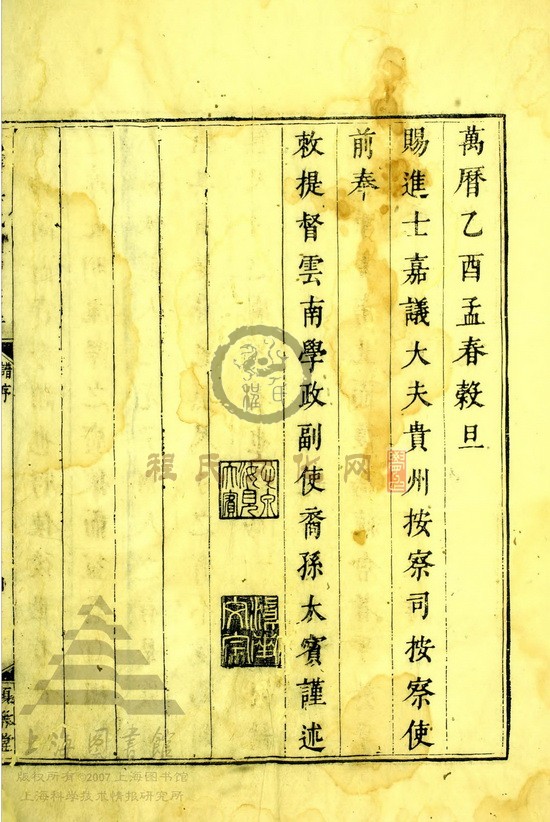 萬曆乙酉孟春穀旦
賜進士嘉議大夫貴州按察司按察使
前奉
敕提督雲南學政副使裔孫大賓謹述
譜序
程氏文化网
上海图書館
版权所有 ©2007 上海图书馆
上海科学技术情报研究所